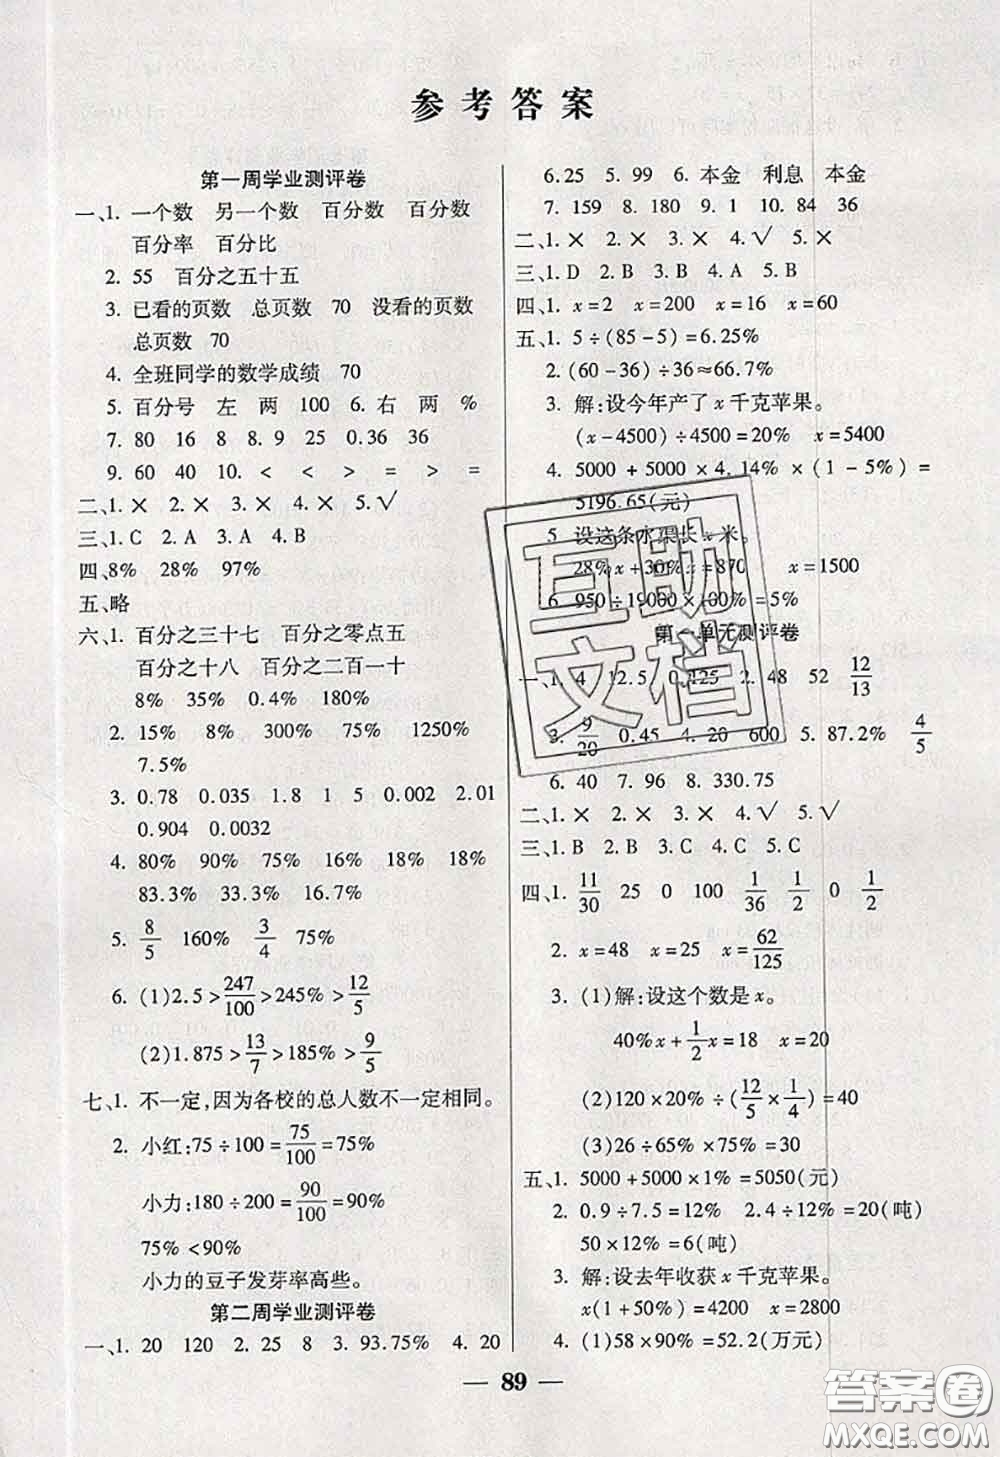 参考答案
第一周学业测评卷
一、1. 一个数 另一个数 百分数 百分数
百分率 百分比
2. 55 百分之五十五
3. 已看的页数 总页数 70 没看的页数
总页数 70
4. 全班同学的数学成绩 70
5. 百分号 左 两 100 6. 右 两 %
7. 80 16 8 8. 9 25 0.36 36
9. 60 40 10. < < > = > =
二、1. × 2. × 3. × 4. × 5. √
三、1. C 2. A 3. A 4. B
四、8% 28% 97%
五、略
六、1. 百分之三十七 百分之零点五
百分之十八 百分之二百一十
8% 35% 0.4% 180%
2. 15% 8% 300% 75% 1250%
7.5%
3. 0.78 0.035 1.8 1 5 0.002 2.01
0.904 0.0032
4. 80% 90% 75% 16% 18% 18%
83.3% 33.3% 16.7%
5. 8/5 160% 3/4 75%
6. (1)2.5>247/100>245%>12/5
(2)1.875>13/7>185%>9/5
七、1. 不一定,因为各校的总人数不一定相同。
2. 小红:75÷100=75/100=75%
小力:180÷200=90/100=90%
75%<90%
小力的豆子发芽率高些。
第二周学业测评卷
一、1. 20 120 2. 25 8 3. 93.75% 4. 20
6.25 5. 99 6. 本金 利息 本金
7. 159 8. 180 9. 1 10. 84 36
二、1. × 2. × 3. × 4. √ 5. ×
三、1. D 2. B 3. B 4. A 5. B
四、1. x=2 x=200 x=16 x=60
五、1. 5÷(85-5)=6.25%
2. (60-36)÷36≈66.7%
3. 解:设今年产了x千克苹果。
(x-4500)÷4500=20% x=5400
4. 5000+5000×4.14%×(1-5%)=
5196.65(元)
5 设这条水渠长x米。
28%x+30%x=870 x=1500
6. 950÷19000×100%=5%
第 单元测评卷
一、1. 4 12.5 0.125 2. 48 52 12/13
3. 9/20 0.45 4. 20 600 5. 87.2% 4/5
6. 40 7. 96 8. 330.75
二、1. × 2. × 3. × 4. √ 5. √
三、1. B 2. B 3. C 4. C 5. C
四、1. 11/30 25 0 100 1/36 1/2 0 1/2
2. x=48 x=25 x=62/125
3. (1)解:设这个数是x。
40%x+1/2x=18 x=20
(2)120×80%÷(12/5×1/4)=40
(3)26÷65%×75%=30
五、1. 5000+5000×1%=5050(元)
2. 0.9÷7.5=12% 2.4÷12%=20(吨)
50×12%=6(吨)
3. 解:设去年收获x千克苹果。
x(1+50%)=4200 x=2800
4. (1)58×90%=52.2(万元)
— 89 —
互助文档
答案卷
MXQE.COM